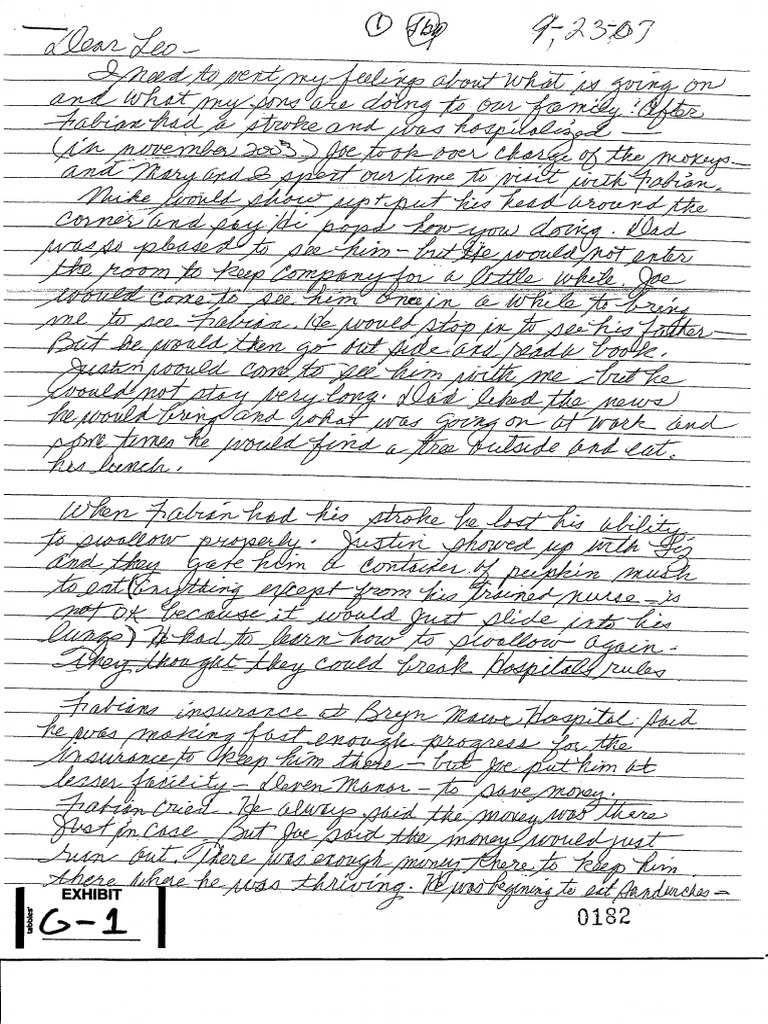 ① 9-23-07
Dear Leo-
I need to vent my feelings about what is going on
and what my sons are doing to our family! After
Fabian had a stroke and was hospitalized —
(in november 2003) Joe took over charge of the moneys-
and Mary and I spent our time to visit with Fabian.
Mike would show up + put his head around the
corner and say Hi pops how you doing. Dad
was so pleased to see him - but He would not enter
the room to keep company for a little while. Joe
would come to see him once in a while to bring
me to see Fabian. He would stop in to see his father-
But he would then go out side and read a book.
Justin would come to see him with me - but he
would not stay very long. Dad liked the news
he would bring and what was going on at work and
some times he would find a tree outside and eat.
his lunch.
When Fabian had his stroke he lost his ability
to swallow properly. Justin showed up with Liz
and they gave him a container of pumpkin mush
to eat (anything except from his trained nurse - is
not OK because it would just slide into his
lungs) He had to learn how to swallow again -
They thought they could break Hospitals rules.
Fabians insurance at Bryn Mawr Hospital said
he was making fast enough progress for the
insurance to keep him there - but Joe put him at
lesser facility - Deven Manor - to save money.
Fabian cried. He always said the money was there
Just in case. But Joe said the money would just
run out. There was enough money there to keep him
there where he was thriving. He was begining to eat sandwiches -
EXHIBIT
G-1
tabbies
0182